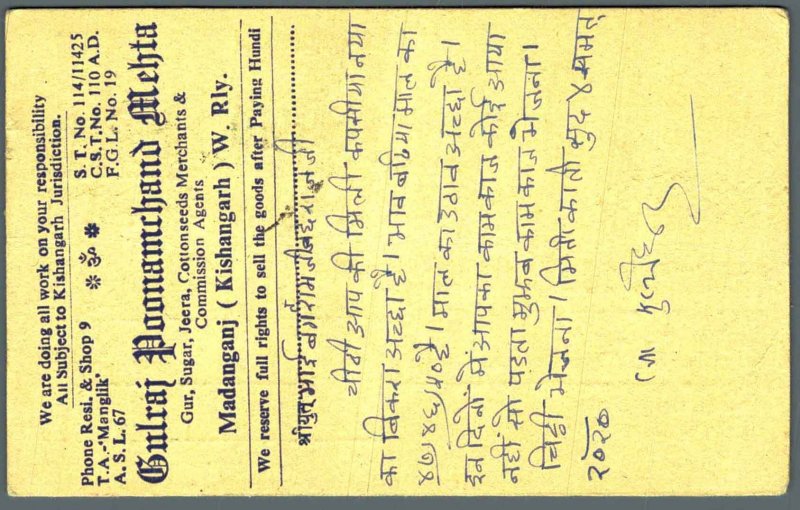 We are doing all work on your responsibility
All Subject to Kishangarh Jurisdiction.
Phone Resi. & Shop 9
T.A.-'Manglik'
A. S. L. 67
❋ ॐ ❋
S. T. No. 114/11425
C.S.T.No. 110 A.D.
F.G.L. No. 19
Gulraj Poonamchand Mehta
Gur, Sugar, Jeera, Cottonseeds Merchants &
Commission Agents
Madanganj ( Kishangarh ) W. Rly.
We reserve full rights to sell the goods after Paying Hundi
श्रीयुत् भाई
चीठी आप की मिली कपसीया नया
का बिकरा अच्छा है। भाव बढिया माल का
४७/४६/५० है। माल का उठाव अच्छा है।
इन दिनों में आपका कामकाज कोई आया
नहीं सो पड़ता मुजब कामकाज भेजना।
चिठ्ठी भेजना। मिती काती सुद ४ सम्मत्
२०२०